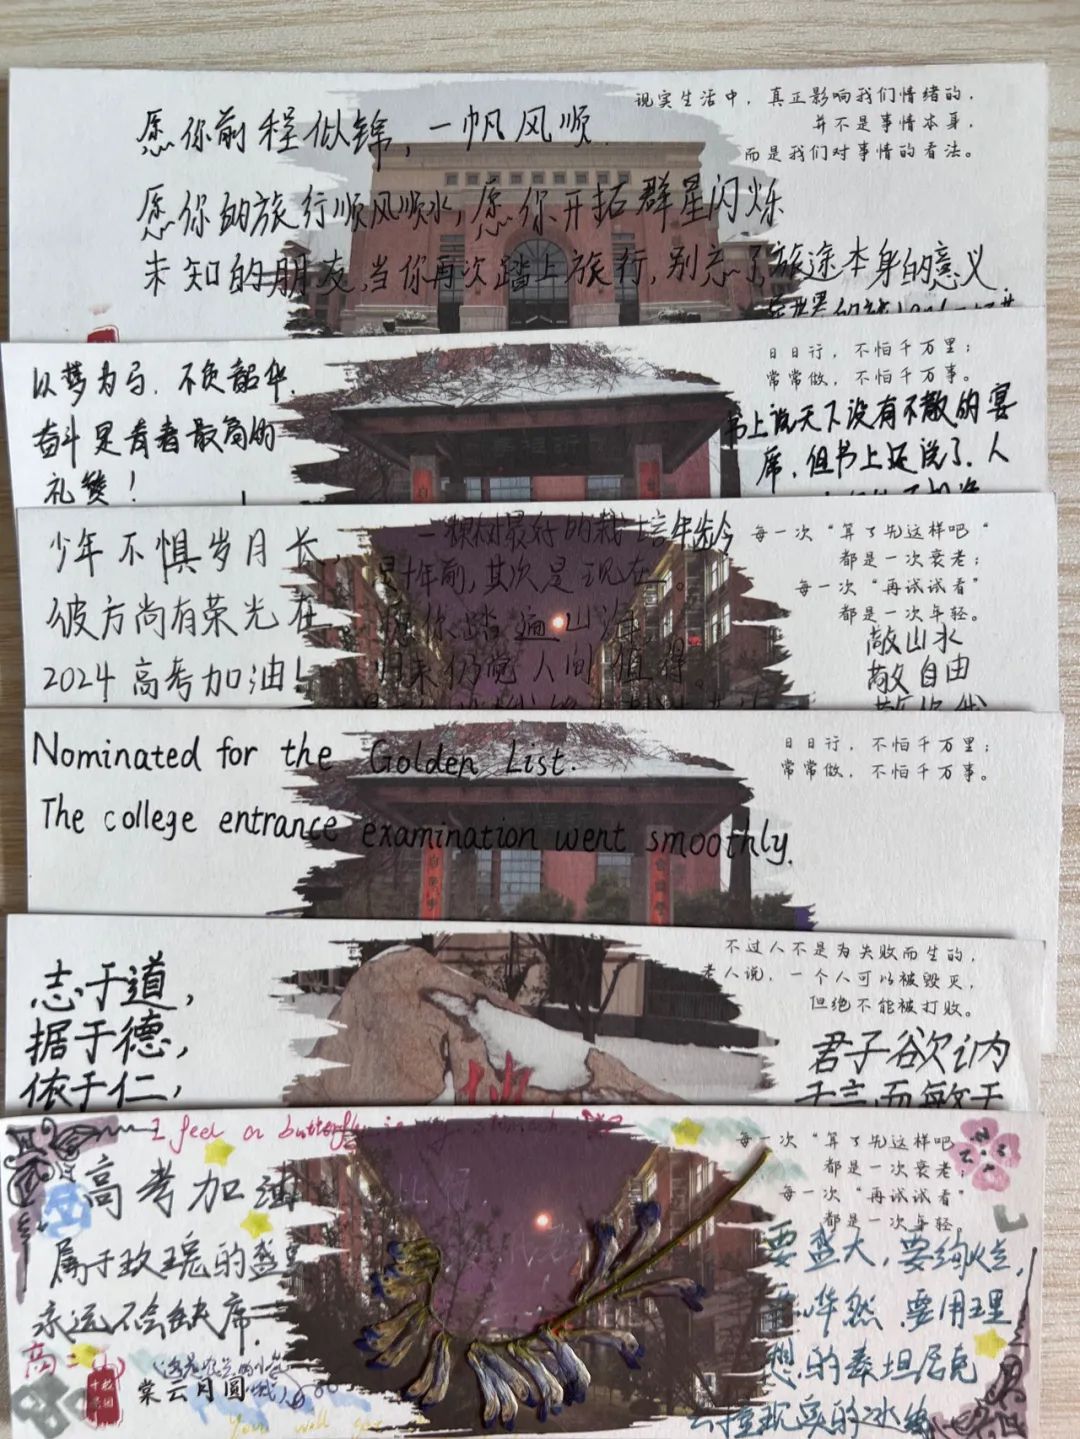 愿你前程似锦，一帆风顺.
现实生活中，真正影响我们情绪的，
并不是事情本身，
而是我们对事情的看法。
愿你的旅行顺风顺水，愿你开拓群星闪烁
未知的朋友，当你再次踏上旅行，别忘了旅途本身的意义.
以梦为马，不负韶华.
奋斗是青春最高的
礼赞！
日日行，不怕千万里；
常常做，不怕千万事。
书上说天下没有不散的宴
席，但书上还说了，人
少年不惧岁月长，
彼方尚有荣光在
2024高考加油！
一棵树最好的栽培
是十年前，其次是现在。
愿你踏遍山海
归来仍觉人间值得
每一次“算了先这样吧“
都是一次衰老；
每一次“再试试看”
都是一次年轻。
敬山水
敬自由
Nominated for the Golden List.
The college entrance examination went smoothly.
日日行，不怕千万里；
常常做，不怕千万事。
志于道，
据于德，
依于仁，
不过人不是为失败而生的，
老人说，一个人可以被毁灭，
但绝不能被打败。
君子欲讷
于言而敏于
I feel a butterfly in my stomach
高考加油
属于玫瑰的盛
永远不会缺席
高
棠云月圆
You will get
每一次“算了先这样吧
都是一次衰老；
每一次“再试试看”
都是一次年轻。
要盛大，要绚烂，
要哗然 要用理
想的泰坦尼克
去撞现实的冰